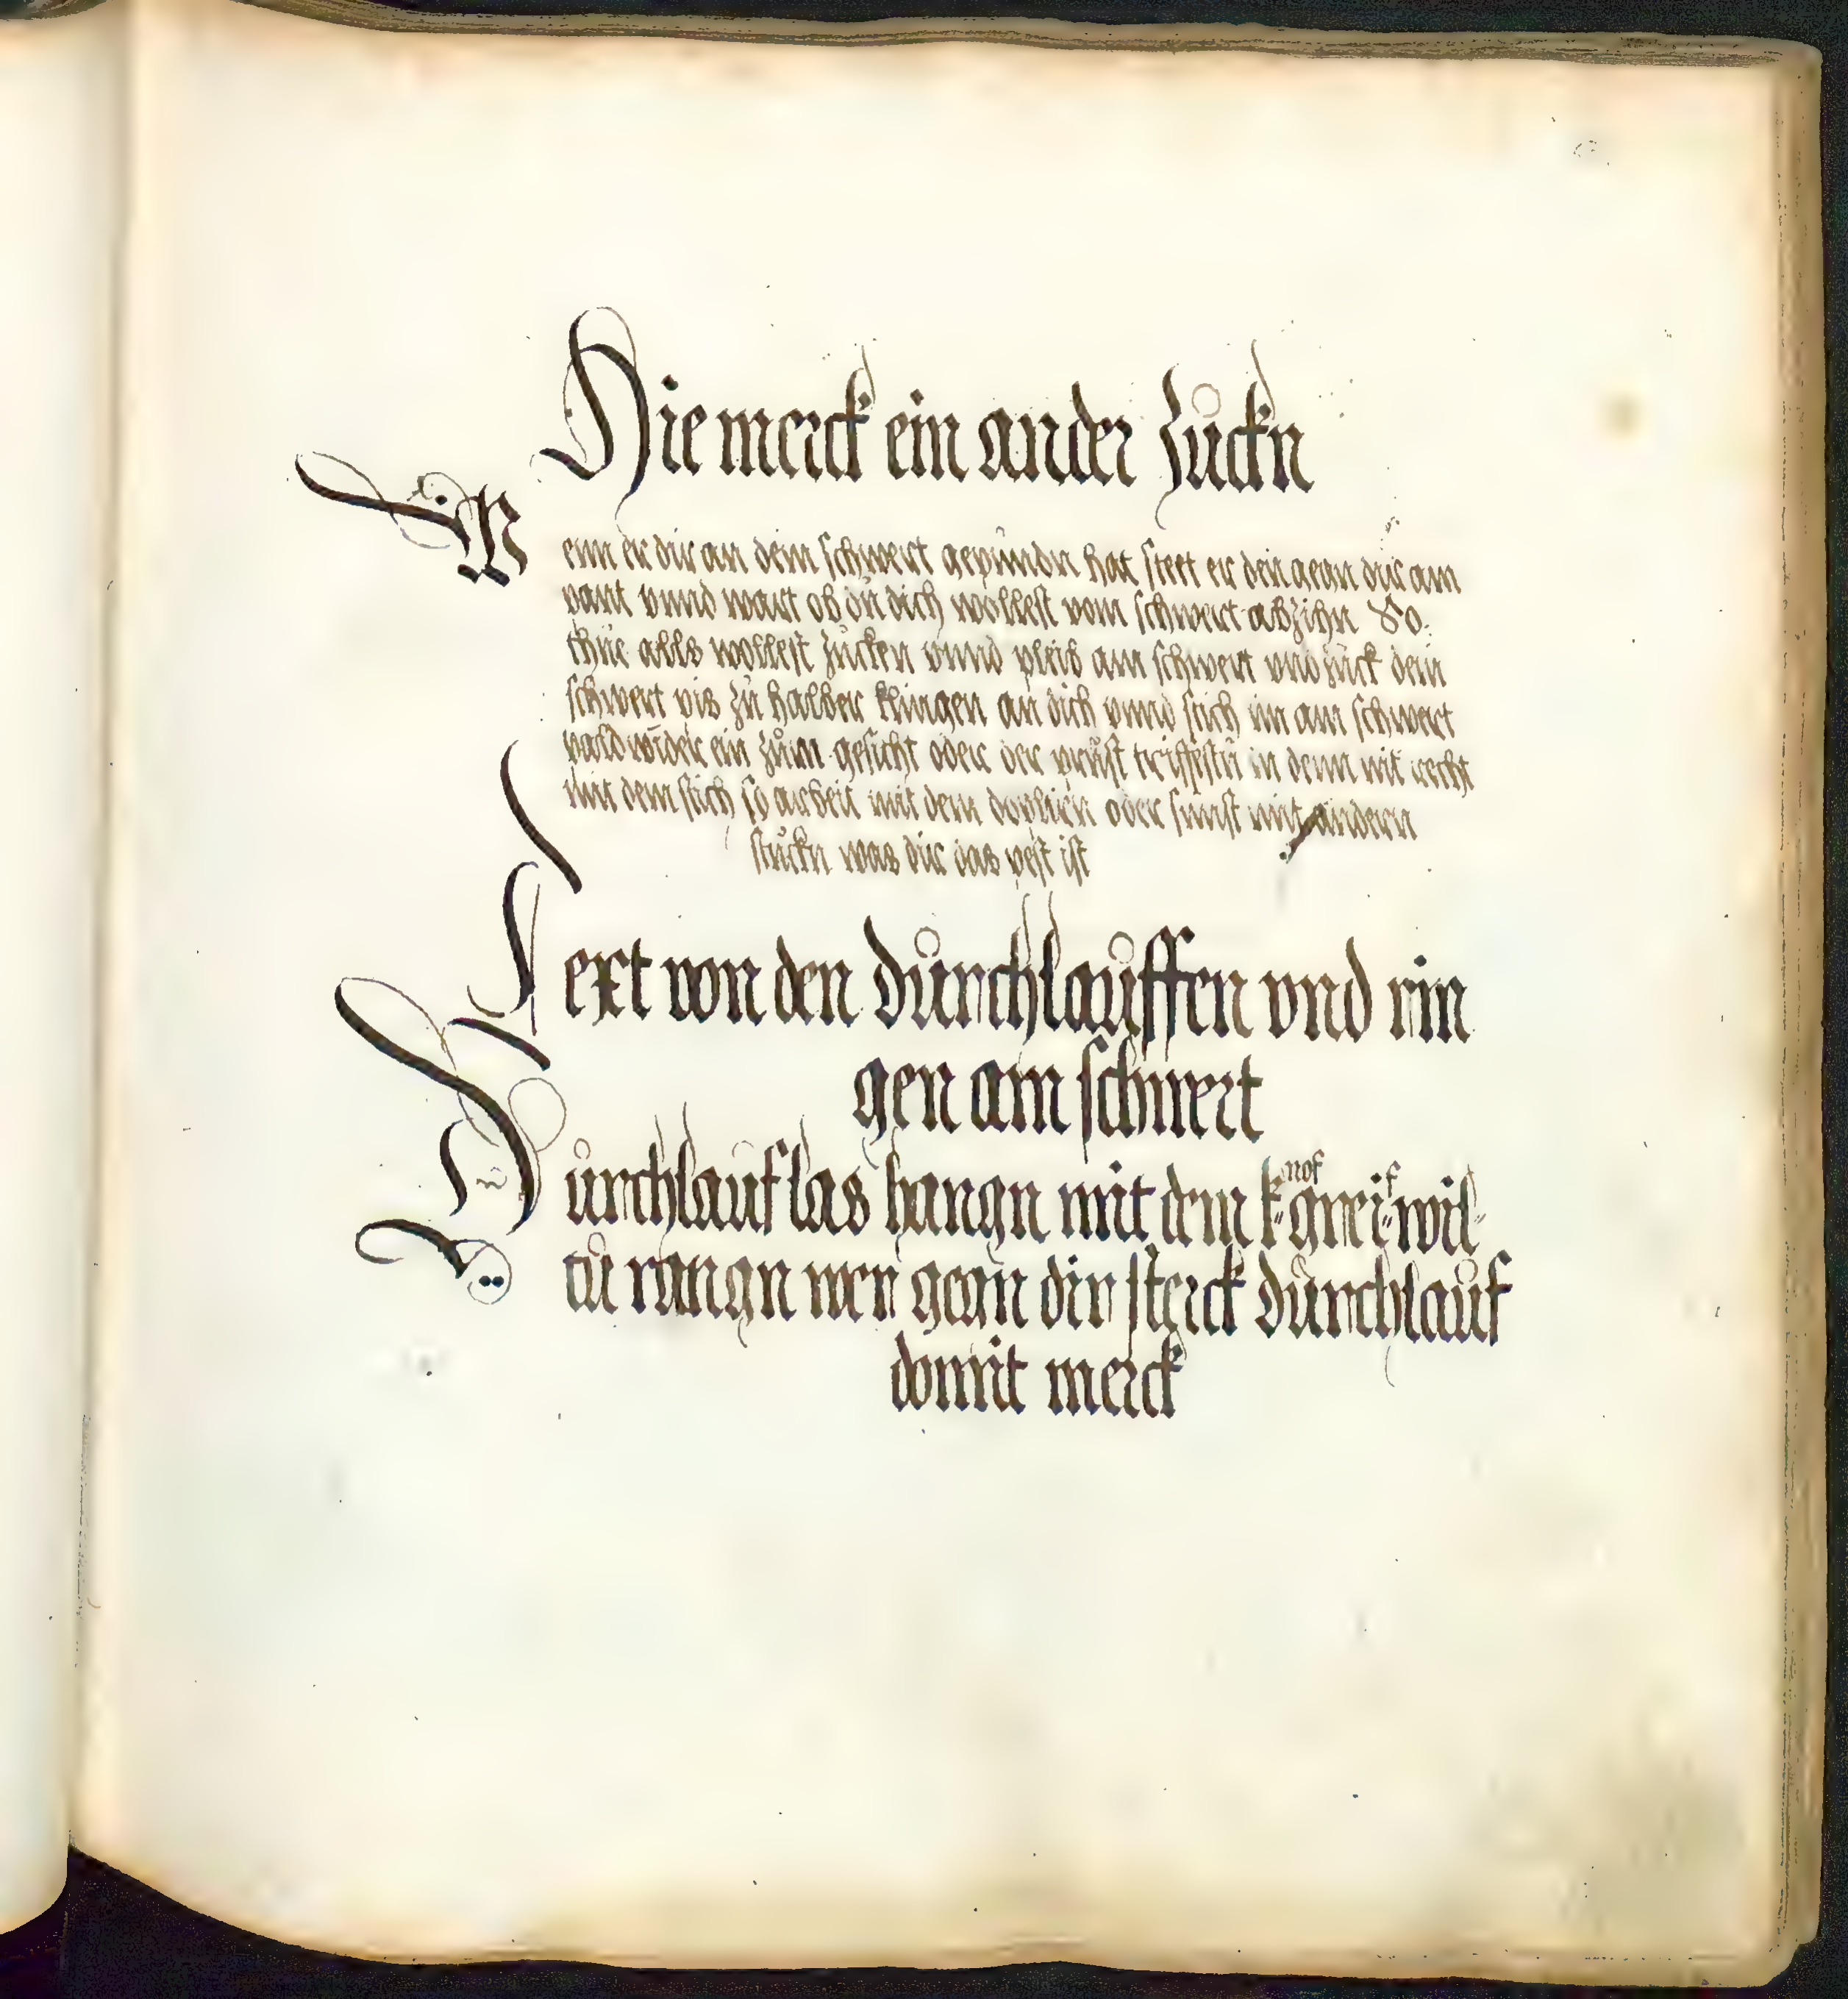 Hie merck ein ander zůckn
Wenn er dir an dem schwert gepůndn hat steet er den gegn dir am
pant vnnd wart ob dů dich wollest vom schwert abzihn So
thůe alls wollest zůcken vnnd pleib am schwert vnd zůck dein
schwert bis zů halber klingen an dich vnnd stich im am schwert
pald wider ein zům gesicht oder der průst triffestů in denn nit recht
mit dem stich so arbeit mit dem doplirn oder sůnst mit andern
stůckn was dir das pest ist
Text von den důrchlaůffen vnd rin
gen am schwert
Důrchlauf las hangn mit dem knof greif wil
tů rangn wer gegn dir sterck důrchlaůf
domit merck